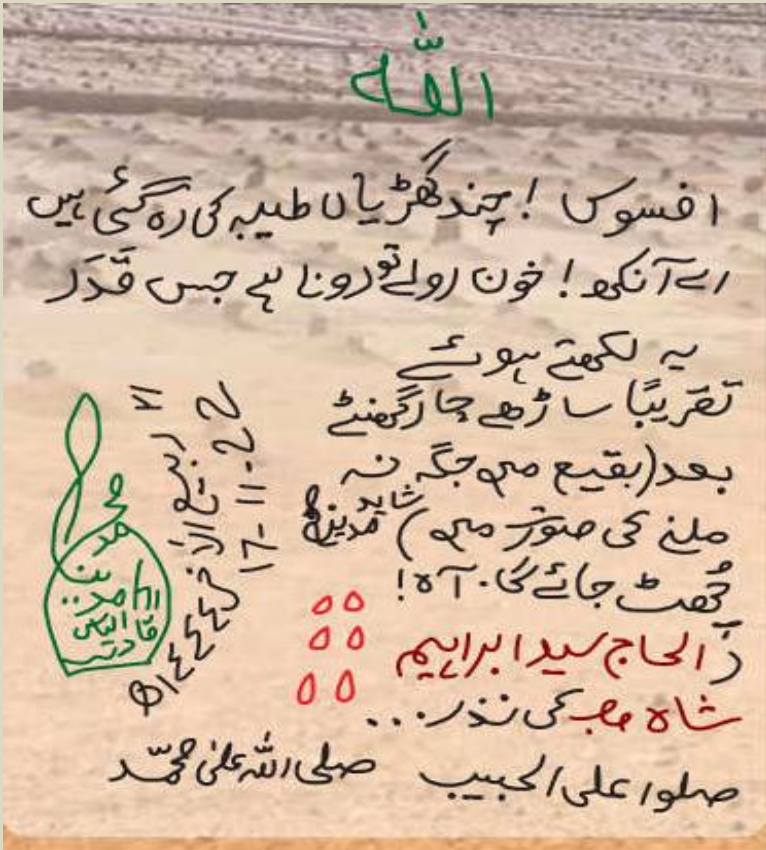 اللہ
افسوس! چند گھڑیاں طیبہ کی رَہ گئی ہیں
اے آنکھ! خون رولے تو رونا ہے جس قَدَر
یہ لکھتے ہوئے
تقریبًا ساڑھے چار گھنٹے
بعد (بقیع میں جگہ نہ
ملنے کی صورت میں) شاید مدینہ
چُھٹ جائے گا. آہ!
الحاج سید ابراہیم
شاہ صاحب کی نذر...
صلوا علی الحبیب صلی اللہ علی محمّد
٢١ ربیع الآخر ١٤٤٤ھ
17-11-22
محمد
الیاس
قادری